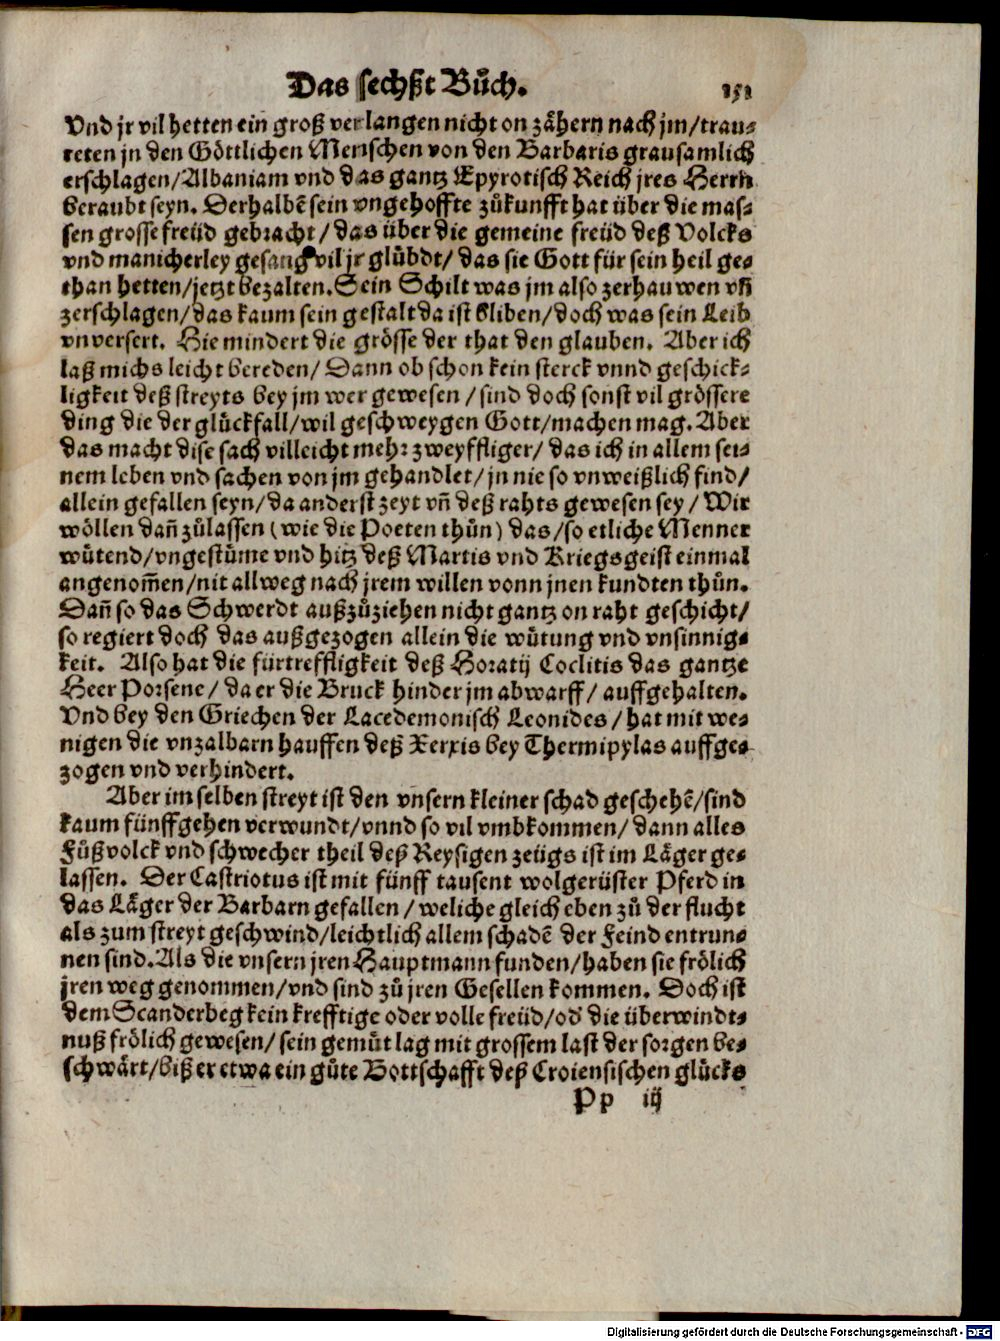 Das sechßt Bůch. 151
Vnd jr vil hetten ein groß verlangen nicht on zähern nach jm/traw⸗
reten jn den Göttlichen Menschen von den Barbaris grausamlich
erschlagen/Albaniam vnd das gantz Epyrotisch Reich jres Herrn
beraubt seyn. Derhalbē sein vngehoffte zůkunfft hat über die mas⸗
sen grosse freüd gebracht/das über die gemeine freüd deß Volcks
vnd manicherley gesang vil jr glübdt/das sie Gott für sein heil ge⸗
than hetten/jetzt bezalten. Sein Schilt was jm also zerhauwen vñ
zerschlagen/das kaum sein gestalt da ist bliben/doch was sein Leib
vnversert. Hie mindert die grösse der that den glauben. Aber ich
laß michs leicht bereden/Dann ob schon kein sterck vnnd geschick⸗
ligkeit deß streyts bey jm wer gewesen/sind doch sonst vil grössere
ding die der glückfall/wil geschweygen Gott/machen mag. Aber
das macht dise sach villeicht mehr zweyffliger/das ich in allem sei⸗
nem leben vnd sachen von jm gehandlet/jn nie so vnweißlich find/
allein gefallen seyn/da anderst zeyt vñ deß rahts gewesen sey/Wir
wöllen dañ zůlassen (wie die Poeten thůn) das/so etliche Menner
wütend/vngestüme vnd hitz deß Martis vnd Kriegsgeist einmal
angenom̃en/nit allweg nach jrem willen vonn jnen kundten thůn.
Dañ so das Schwerdt außzůziehen nicht gantz on raht geschicht/
so regiert doch das außgezogen allein die wütung vnd vnsinnig⸗
keit. Also hat die fürtreffligkeit deß Horatij Coclitis das gantze
Heer Porsene/da er die Bruck hinder jm abwarff/auffgehalten.
Vnd bey den Griechen der Lacedemonisch Leonides/hat mit we⸗
nigen die vnzalbarn hauffen deß Xerxis bey Thermipylas auffge⸗
zogen vnd verhindert.
Aber im selben streyt ist den vnsern kleiner schad geschehē/sind
kaum fünffgehen verwundt/vnnd so vil vmbkommen/dann alles
Fůßvolck vnd schwecher theil deß Reysigen zeügs ist im Läger ge⸗
lassen. Der Castriotus ist mit fünff tausent wolgerüster Pferd in
das Läger der Barbarn gefallen/weliche gleich eben zů der flucht
als zum streyt geschwind/leichtlich allem schadē der Feind entrun⸗
nen sind. Als die vnsern jren Hauptmann funden/haben sie frölich
jren weg genommen/vnd sind zů jren Gesellen kommen. Doch ist
dem Scanderbeg kein krefftige oder volle freüd/od' die überwindt⸗
nuß frölich gewesen/sein gemůt lag mit grossem last der sorgen be⸗
schwärt/biß er etwa ein gůte Bottschafft deß Croiensischen glücks
Pp iij
Digitalisierung gefördert durch die Deutsche Forschungsgemeinschaft - DFG